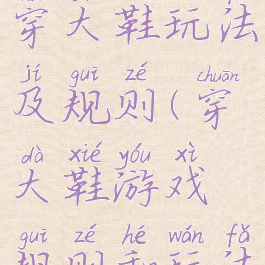 穿大鞋玩法
jí guī zé chuān
及规则(穿
dà xié yóu xì
大鞋游戏
guī zé hé wán fǎ
规则和玩法